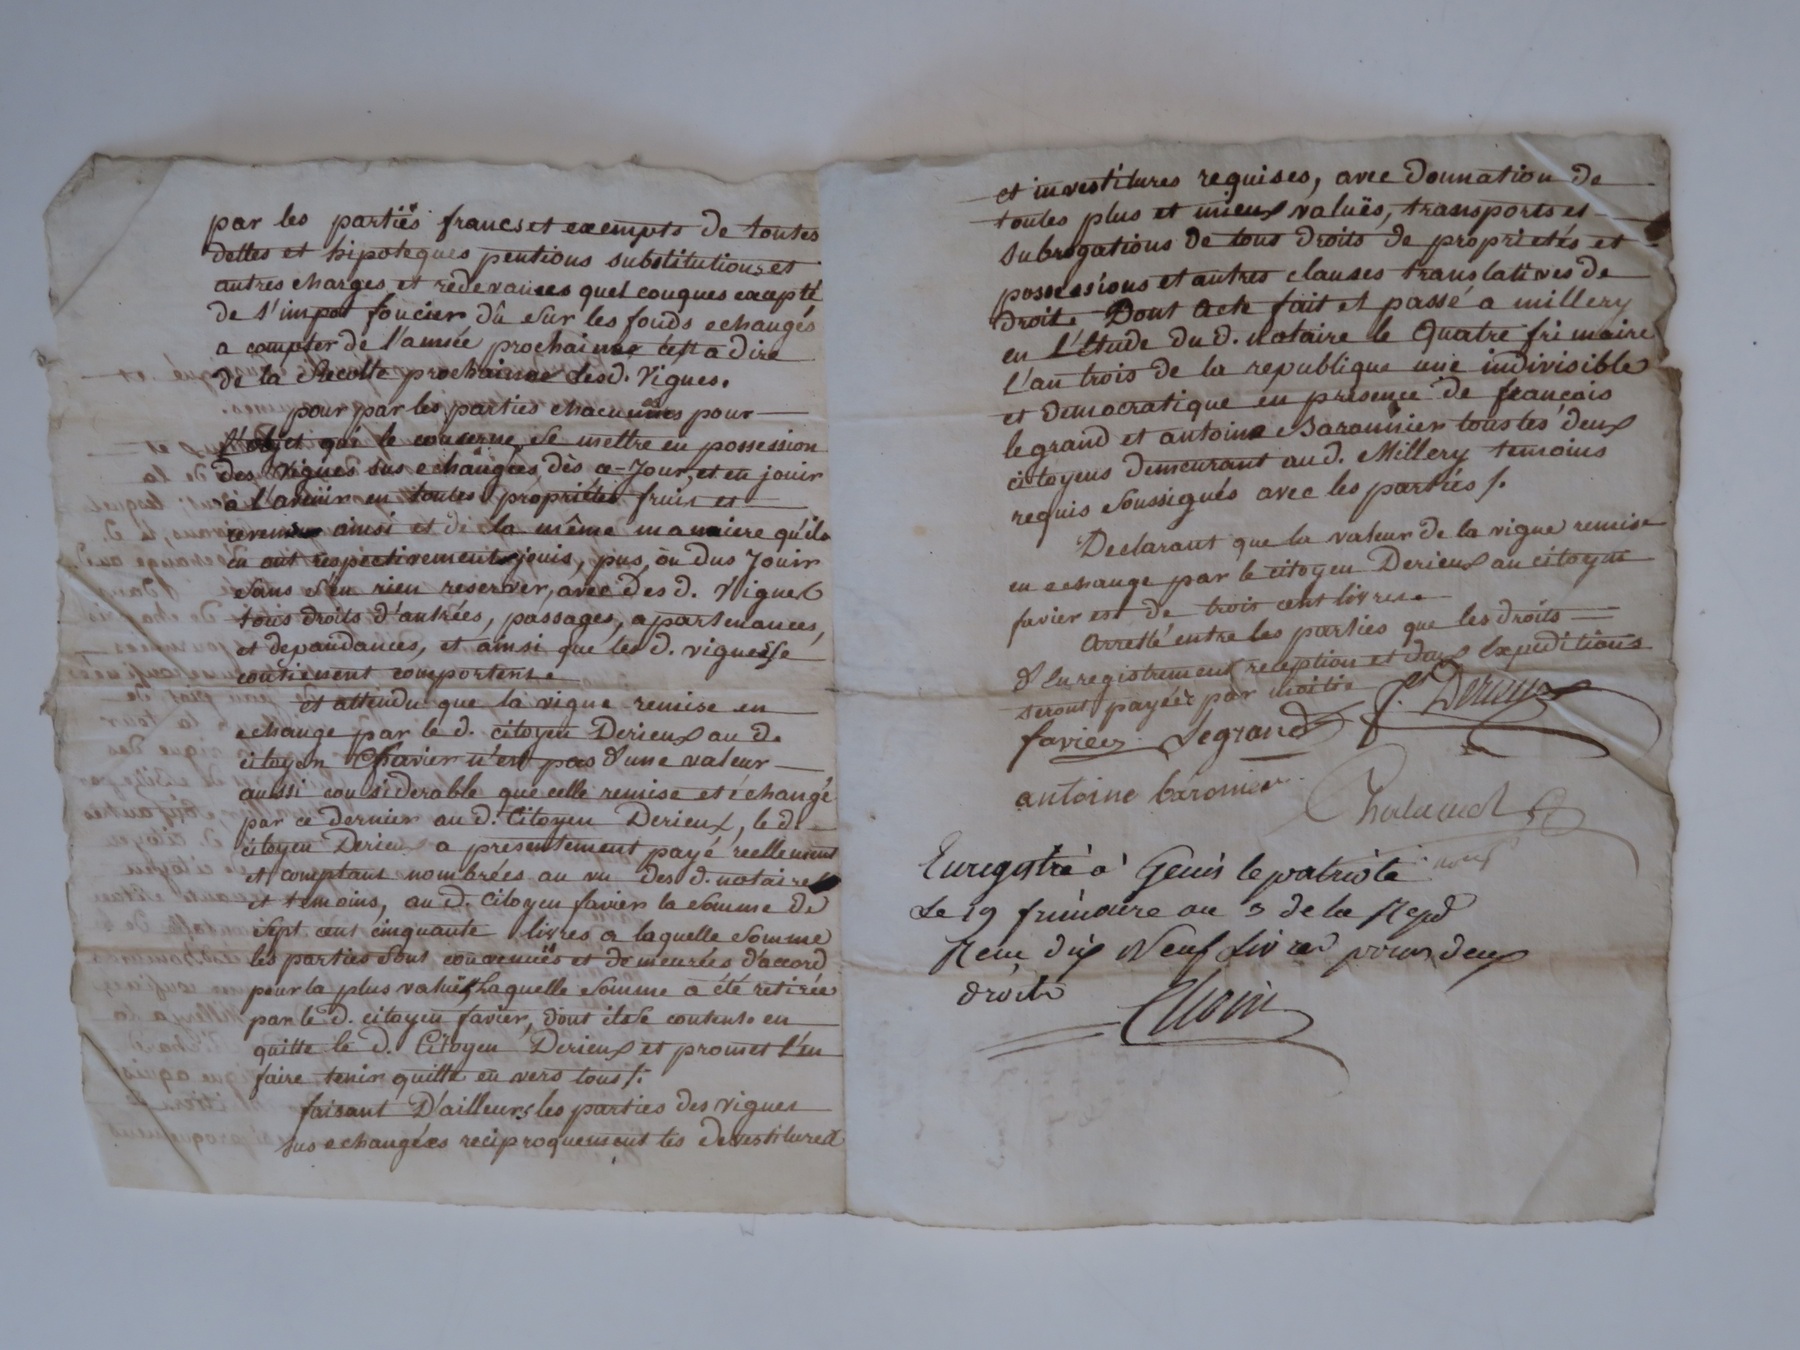 par les partiës francs et exempts de toutes
dettes et hipoteques pentions substitutions et
autres charges et redevances quelconques excepté
de l'impot foncier dû sur les fonds echangés
a compter de l'année prochaine c'est a dire
de la Recolte prochaine desd. Vignes.
pour par les parties chacunes pour
l'objet qui le concerne, se mettre en possession
des Vignes sus echangées dès ce-Jour, et en jouir
a l'avenir en toutes propriétés fruis et
revenus ainsi et de la même maniere qu'ils
en ont respectivement jouis, pus, ou dus Jouir
sans s'en rien reserver, avec des d. Vignes
tous droits d'antrées, passages, apartenances,
et depandances, et ainsi que les d. vignes se
contienent comportent.
et attendu que la vigne remise en
echange par le d. citoyen Derieux au d.
citoyen favier n'est pas d'une valeur
aussi considerable que celle remise et échangé
par ce dernier au d. Citoyen Derieux, le d.
citoyen Derieux a presentement payé reellement
et comptant nombrées au vu des d. notaire
et temoins, au d. Citoyen favier la somme de
sept cent cinquante livres a laquelle somme
les parties sont convenuës et demeurées d'accord
pour la plus valuë, Laquelle somme a été retirée
par le d. citoyen favier, dont il se content. en
quitte le d. Citoyen Derieux et promet l'en
faire tenir quitte en vers tous /.
faisant D'ailleurs les parties des vignes
sus echangées reciproquement les devestitures
et investitures requises, avec donnation de
toutes plus et mieux valuës, transports et
subrogations de tous droits de proprietés et
possessions et autres clauses translatives de
droit. Dont Acte fait et passé a millery
en l'Etude du d. notaire le Quatre frimaire
l'an trois de la republique une indivisible
et democratique en presence de françois
legrand et antoine Baronnier tous tes deux
citoyens demeurant au d. Millery temoins
requis soussignés avec les parties /.
Declarant que la valeur de la vigne remise
en echange par le citoyen Derieux au citoyen
favier est de trois cent livres.
Arretté entre les parties que les droits
d'Enregistrement, reception et deux Expeditions
seront payées par moitié F. Derieux
favier Legrand
antoine baronier
Enregistré à Genis le patriote
Le 19 frimaire an 3 de la Repd
Recu dix Neuf Livres pour deux
droits